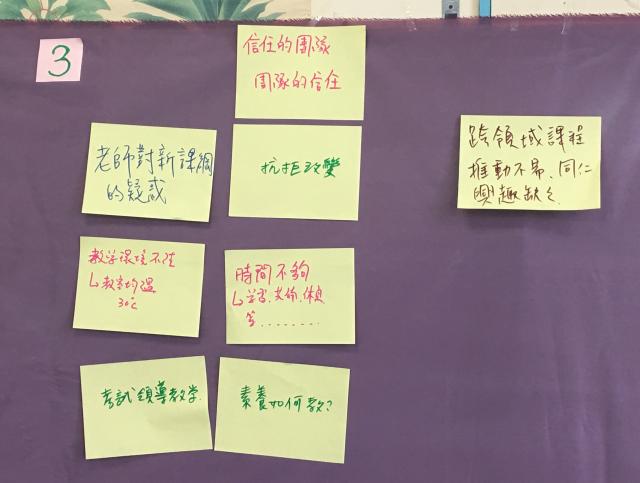 3
信任的團隊
團隊的信任
老師對新課綱
的疑惑
抗拒改變
跨領域課程
推動不易、同仁
興趣缺缺.
教学環境不佳
↳教室均溫
30℃
時間不夠
↳学習、共備、
等........
考試領導教学.
素養如何教?